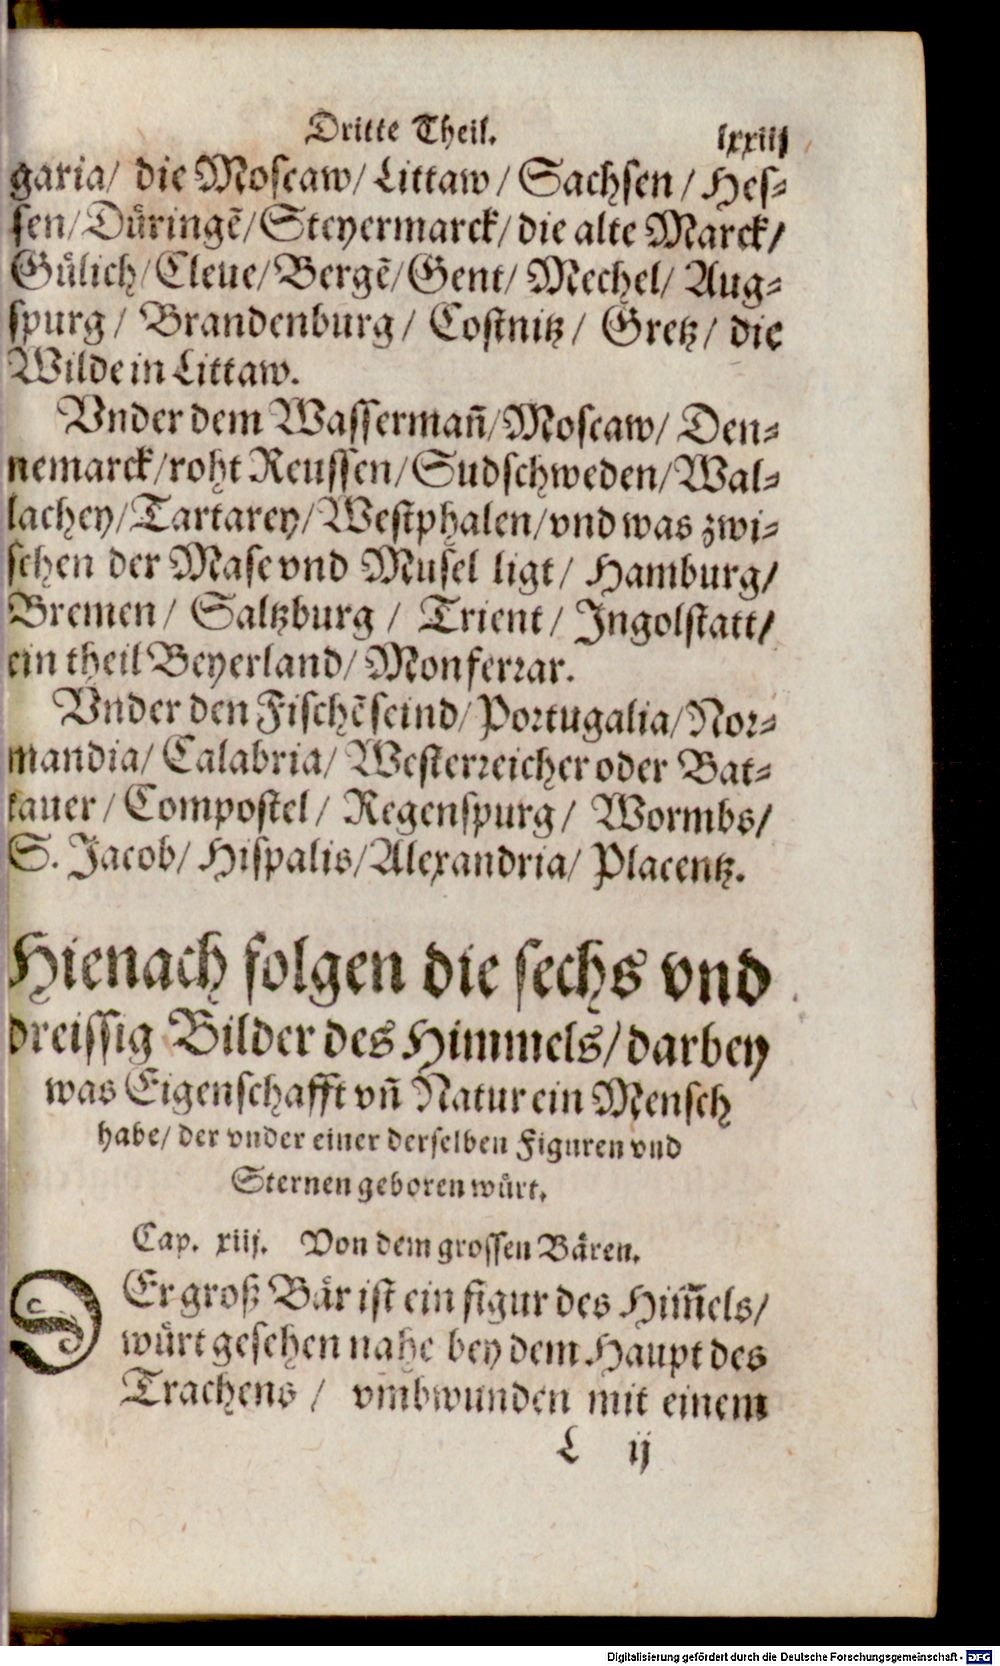 Dritte Theil. lxxiij
garia/ die Moscaw/ Littaw/ Sachsen/ Hes-
sen/ Dúringẽ/ Steyermarck/ die alte Marck/
Gülich/ Cleue/ Bergẽ/ Gent/ Mechel/ Aug-
spurg/ Brandenburg/ Costnitz/ Gretz/ die
Wilde in Littaw.
Vnder dem Wassermañ/ Moscaw/ Den-
nemarck/ roht Reussen/ Sudschweden/ Wal-
lachey/ Tartarey/ Westphalen/ vnd was zwi-
schen der Mase vnd Musel ligt/ Hamburg/
Bremen/ Saltzburg/ Trient/ Ingolstatt/
ein theil Beyerland/ Monferrar.
Vnder den Fischẽ seind/ Portugalia/ Nor-
mandia/ Calabria/ Westerreicher oder Bat-
tauer/ Compostel/ Regenspurg/ Wormbs/
S. Jacob/ Hispalis/ Alexandria/ Placentz.
Hienach folgen die sechs vnd
dreissig Bilder des Himmels/ darbey
was Eigenschafft vñ Natur ein Mensch
habe/ der vnder einer derselben Figuren vnd
Sternen geboren würt.
Cap. xiij. Von dem grossen Bären.
DEr groß Bär ist ein figur des Him̃els/
würt gesehen nahe bey dem Haupt des
Trachens/ vmbwunden mit einem
L ij
Digitalisierung gefördert durch die Deutsche Forschungsgemeinschaft - DFG